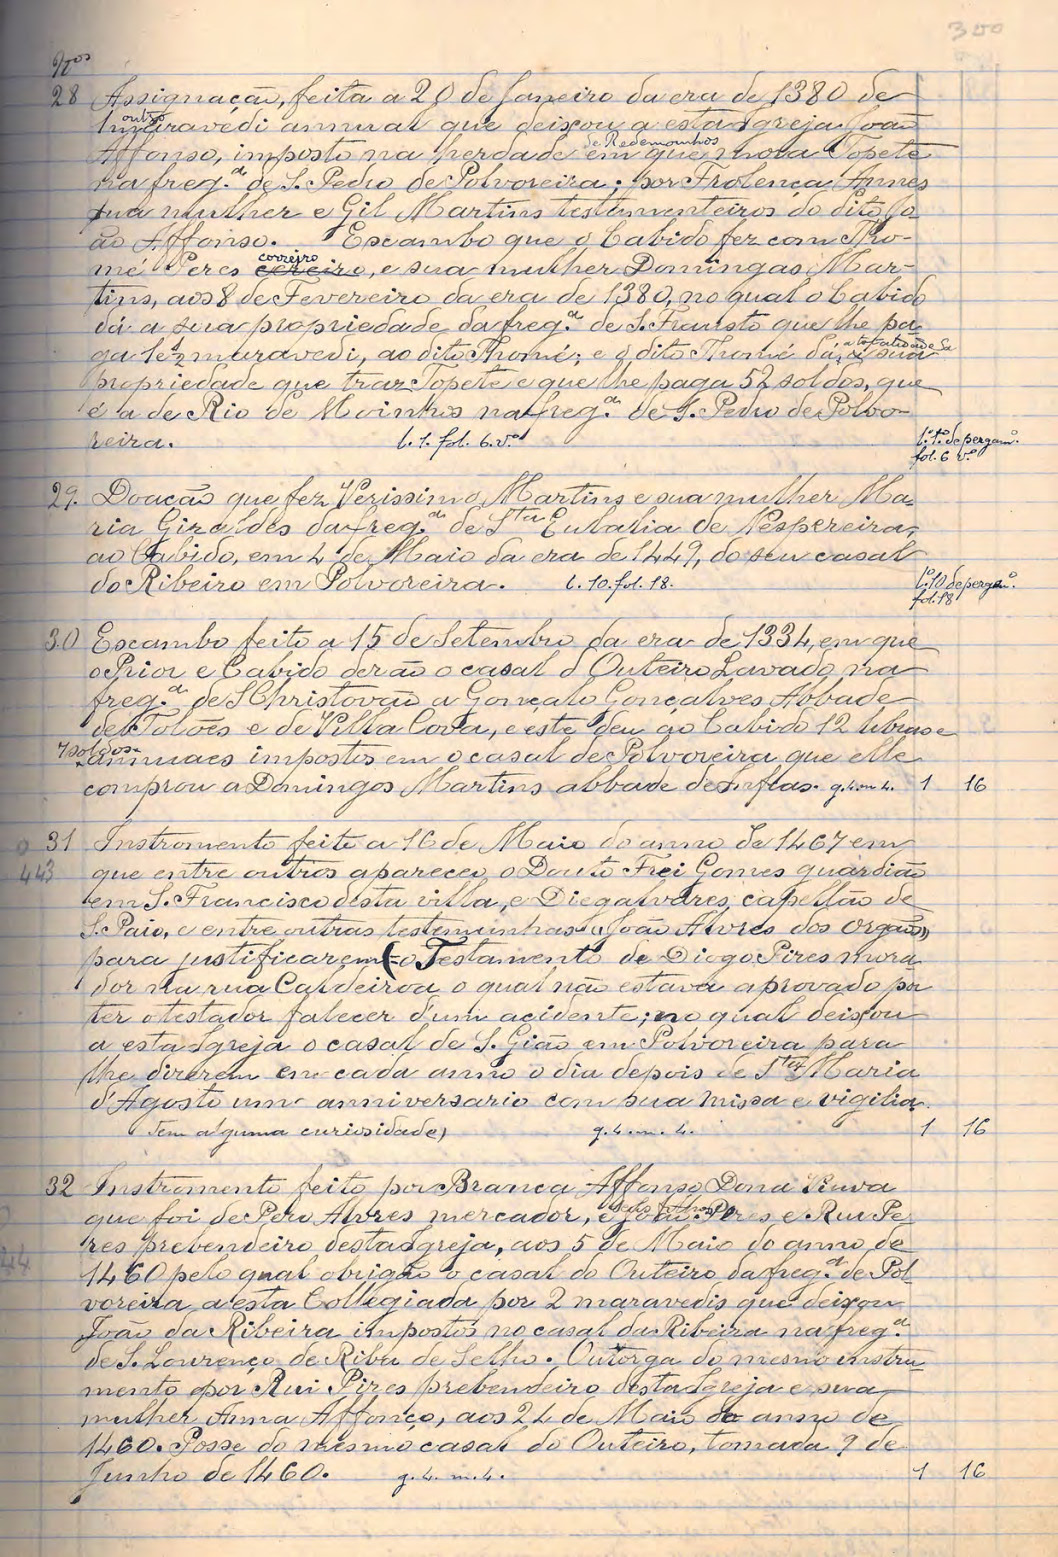 300
Nos
28 Assignação, feita a 20 de Janeiro da era de 1380 de
outro
1 maravedi annual que deixou a esta Igreja João
de Redemoinhos
Affonso, imposto na herdade em que mora Topete
na freg.a de S. Pedro de Polvoreira; por Frolença Annes
sua mulher e Gil Martins testementeiros do dito Jo
ão Affonso. Escambo que o Cabido fez com Tho-
correiro
mé Peres cereiro, e sua mulher Domingas Mar-
tins, aos 8 de Fevereiro da era de 1380, no qual o Cabido
dá a sua propriedade da freg.a de S. Fraústo que lhe pa-
a totalidade da
ga 1 e ½ maravedi, ao dito Thomé; e o dito Thomé dá, sua
propriedade que traz Topete e que lhe paga 52 soldos, que
é a de Rio de Moinhos na freg.a de S. Pedro de Polvo-
reira. l. 1. fol. 6. v.o l.o 1.o de pergam.o
fol. 6 v.o
29. Doação que fez Verissimo Martins e sua mulher Ma-
ria Giraldes da freg.a de S.ta Eulalia de Nespereira,
ao Cabido, em 4 de Maio da era de 1449, do seu casal
do Ribeiro em Polvoreira. l. 10. fol. 18. l.o 10 de pergam.o
fol. 18
30 Escambo feito a 15 de Setembro da era de 1334, em que
o Prior e Cabido derão o casal d'Outeiro Lavado, na
freg.a de S Christovão a Gonçalo Gonçalves Abbade
de Tolões e de Villa Cova, e este deu ao Cabido 12 libras e
7 soldos
annuaes impostos em o casal de Polvoreira, que elle
comprou a Domingos Martins abbade de Infias. g. 4. m. 4. 1 16
31 Instromento feito a 16 de Maio do anno de 1467 em
443 que entre outros apareceo o Douto Frei Gomes guardião
em S. Francisco desta villa, e Diegalvares, capellão de
S. Paio, e entre outras testemunhas "João Alvres dos Orgãos"
para justificarem (o Testamento de Diogo Pires mora-
dor na rua Caldeiroa o qual não estava aprovado por
ter o testador falecer d'um acidente; no qual deixou
a esta Igreja o casal de S. Gião em Polvoreira para
lhe dizerem em cada anno o dia depois de S.ta Maria
d'Agosto um anniversario com sua missa e vigilia.
Tem alguma curiosidade) g. 4. m. 4. 1 16
32 Instromento feito por Branca Affonso, Dona Viuva
seus filhos
que foi de Pero Alvres mercador, e João Pires e Rui Pe-
44 res prebendeiro desta Igreja, aos 5 de Maio do anno de
1460 pelo qual obrigão o casal do Outeiro da freg.a de Pol-
voreira, a esta Collegiada por 2 maravedis que deixou
João da Ribeira impostos no casal da Ribeira na freg.a
de S. Lourenço de Riba de Selho. Outorga do mesmo instru
mento por Rui Pires prebendeiro desta Igreja e sua
mulher Anna Affonço, aos 24 de Maio do anno de
1460. Posse do mesmo casal do Outeiro, tomada 9 de
Junho de 1460. g. 4. m. 4. 1 16